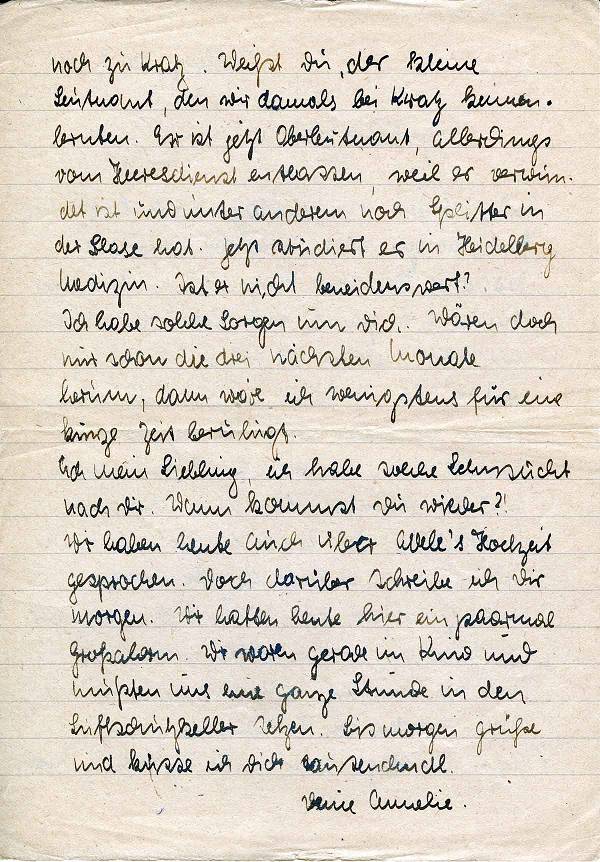 noch zu Kratz. Weißt Du, der kleine
Leutnant, den wir damals bei Kratz kennen-
lernten. Er ist jetzt Oberleutnant, allerdings
vom Heeresdienst entlassen, weil er verwun-
det ist und unter anderem noch Splitter in
der Blase hat. Jetzt studiert er in Heidelberg
Medizin. Ist er nicht beneidenswert?
Ich habe solche Sorgen um Dich. Wären doch
nur schon die drei nächsten Monate
herum, dann wäre ich wenigstens für eine
kurze Zeit beruhigt.
Ach mein Liebling, ich habe solche Sehnsucht
nach Dir. Wann kommst Du wieder?!
Wir haben heute auch über Adele's Hochzeit
gesprochen. Doch darüber schreibe ich Dir
morgen. Wir hatten heute hier ein paarmal
Großalarm. Wir waren gerade im Kino und
mußten uns eine ganze Stunde in den
Luftschutzkeller setzen. Bis morgen grüße
und küsse ich Dich tausendmal.
Deine Annelie.